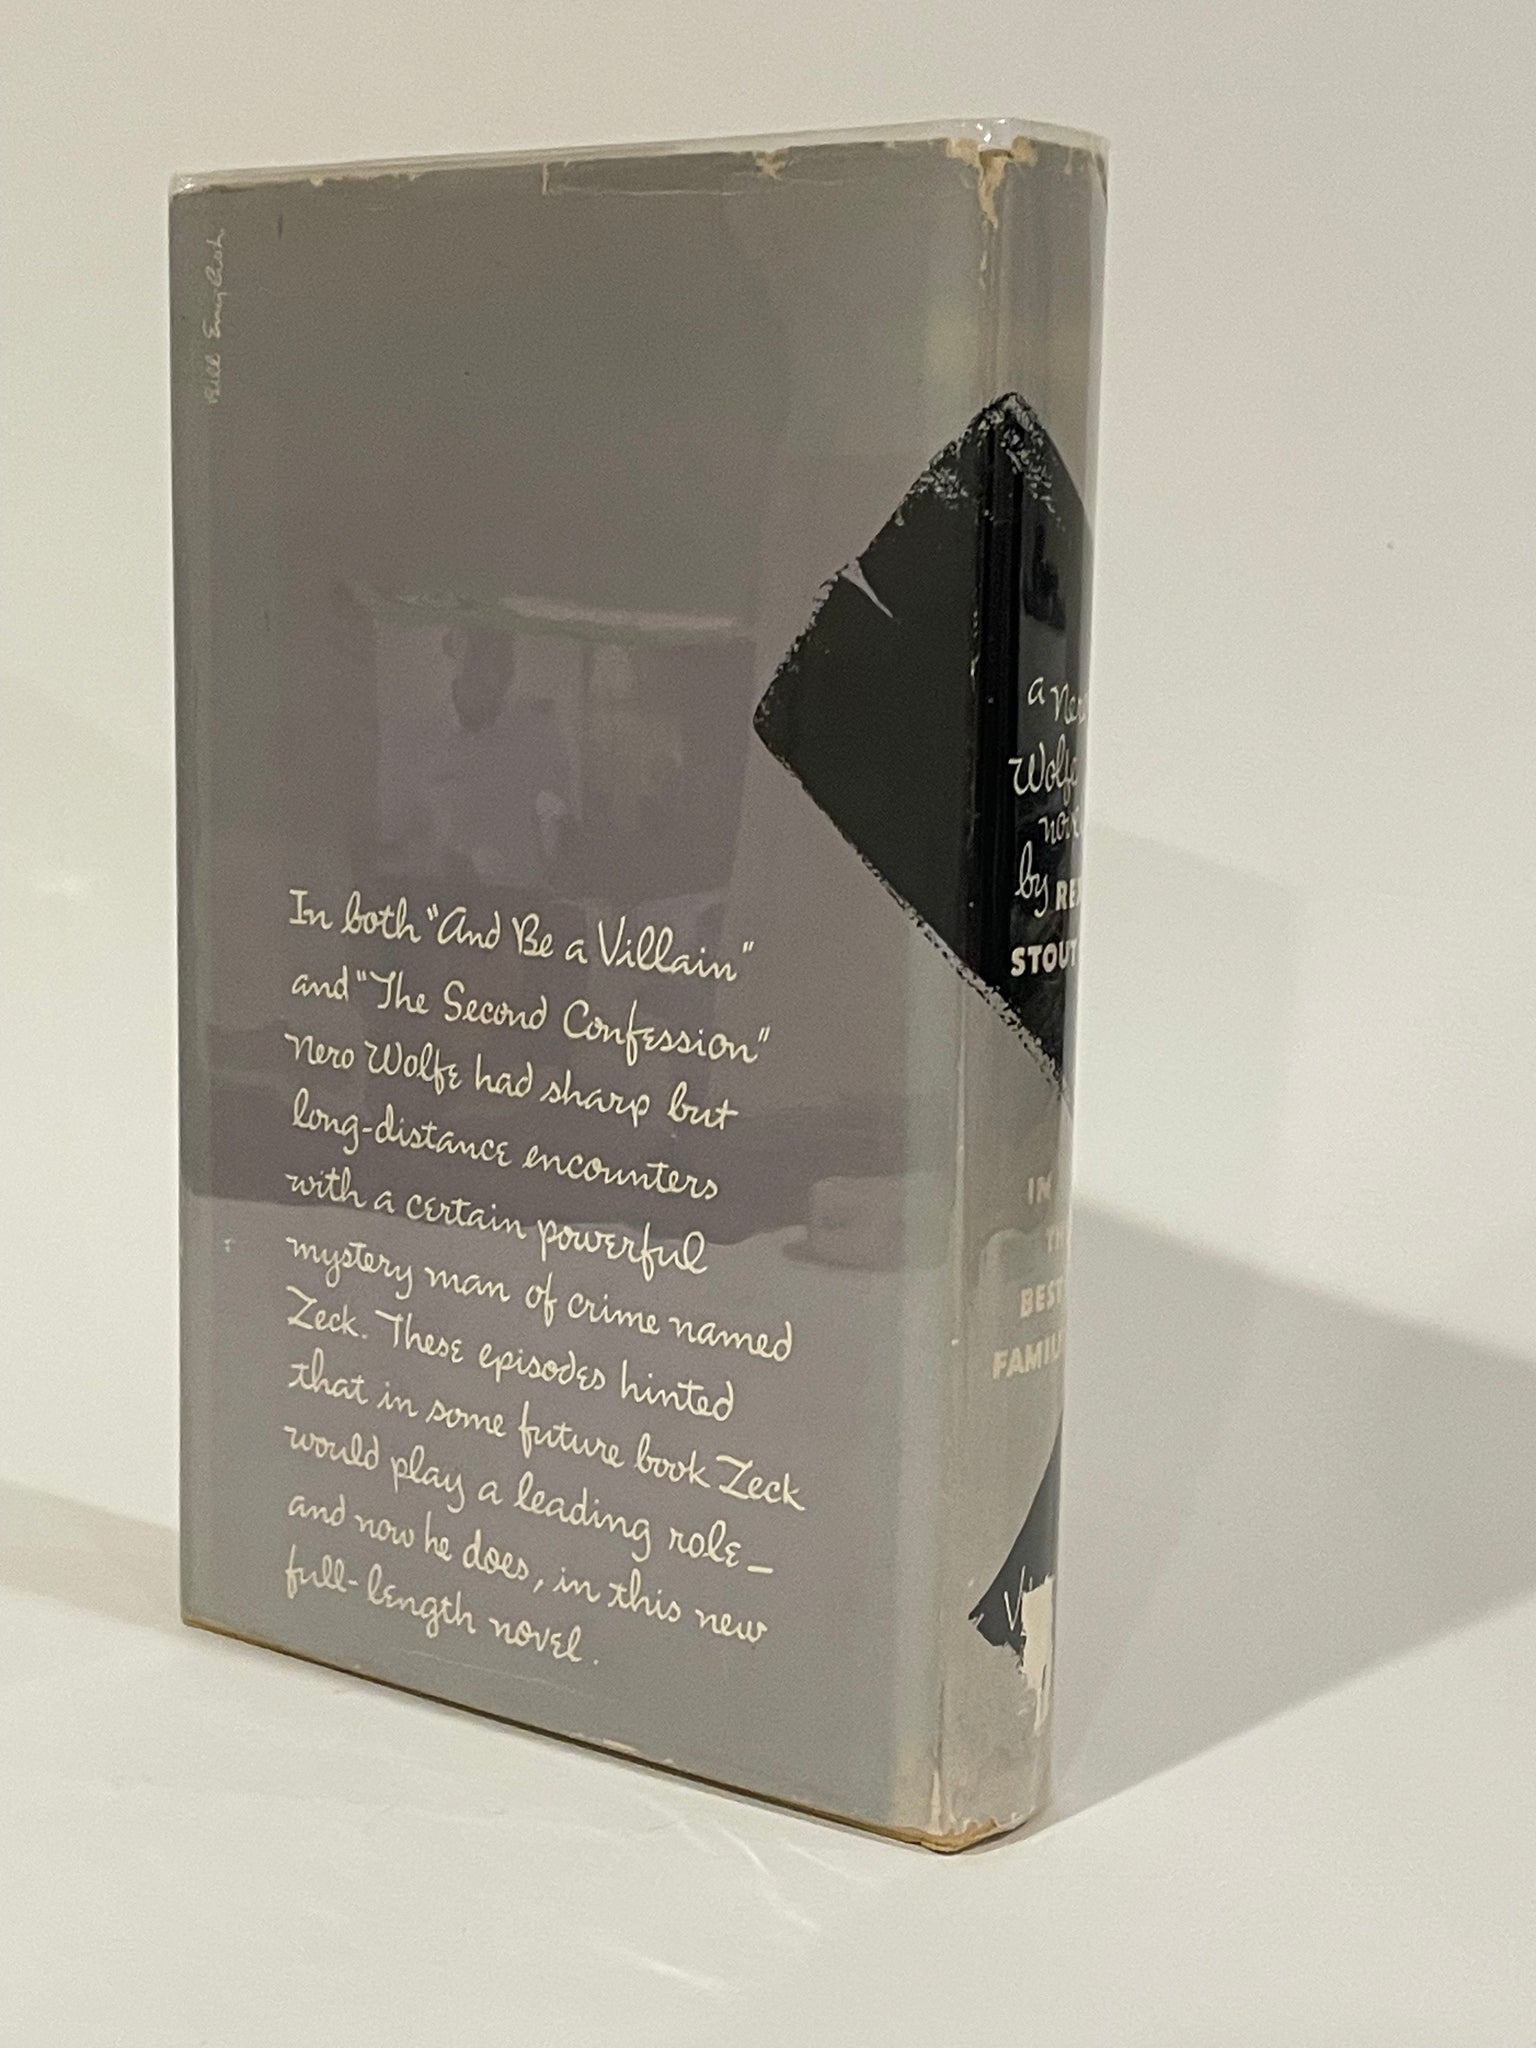 Bill English
In both "And Be a Villain"
and "The Second Confession"
Nero Wolfe had sharp but
long-distance encounters
with a certain powerful
mystery man of crime named
Zeck. These episodes hinted
that in some future book Zeck
would play a leading role—
and now he does, in this new
full-length novel.
a Nero
Wolfe
novel
by REX
STOUT
IN
THE
BEST
FAMILI